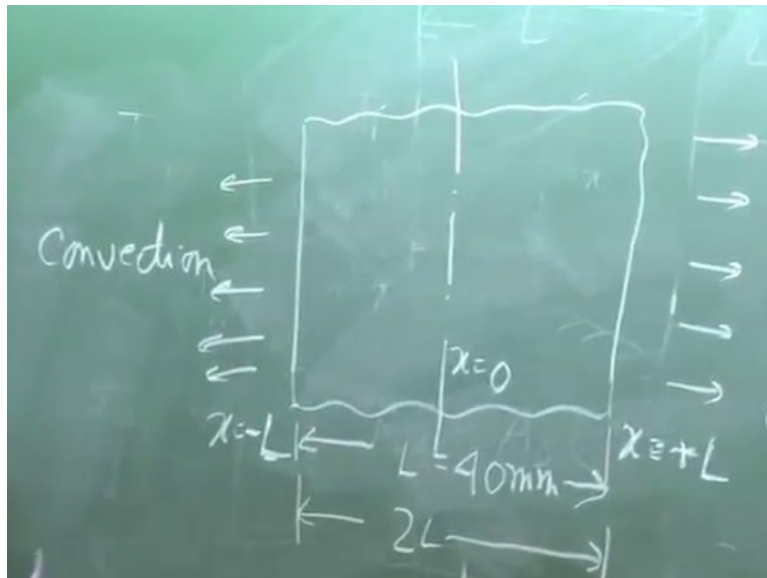 L
Convection
x=0
x=-L
L=40mm
x=+L
2L